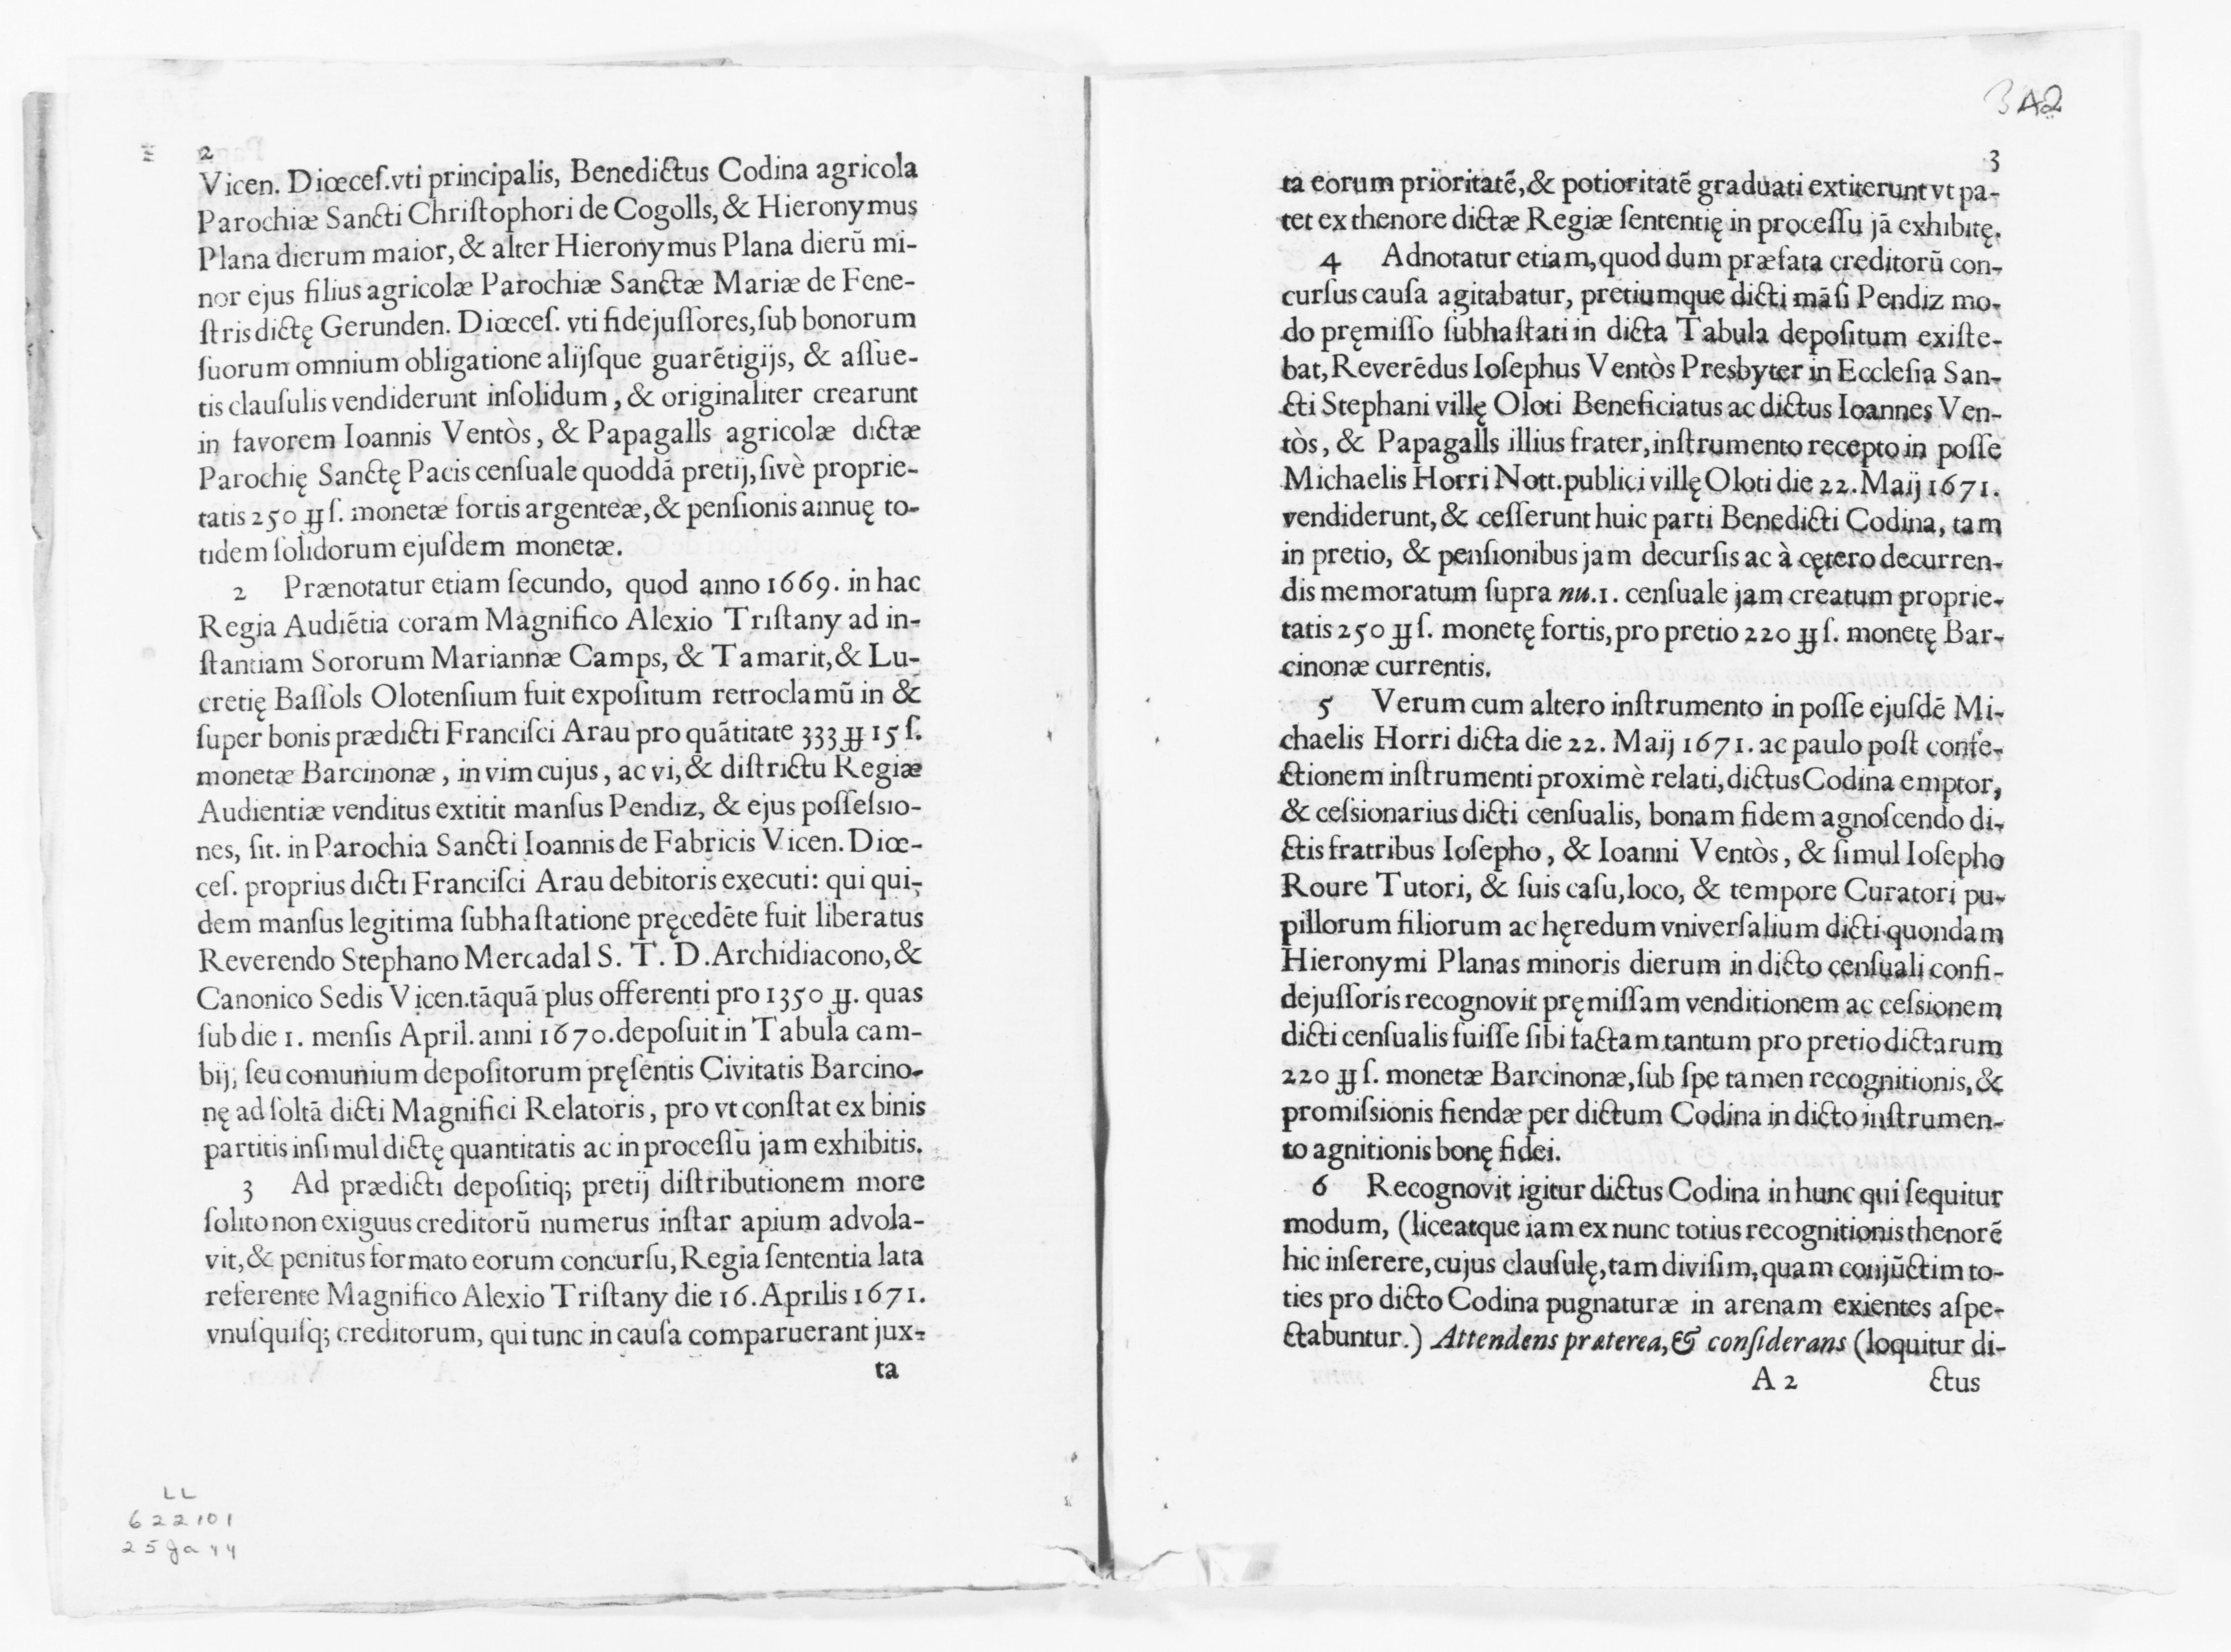 2
Vicen. Diœceſ.vti principalis, Benedictus Codina agricola
Parochiæ Sancti Chriſtophori de Cogolls, & Hieronymus
Plana dierum maior, & alter Hieronymus Plana dierũ mi-
nor ejus filius agricolæ Parochiæ Sanctæ Mariæ de Fene-
ſtris dictę Gerunden. Diœceſ. vti fidejuſſores, ſub bonorum
ſuorum omnium obligatione alijſque guarẽtigijs, & aſſue-
tis clauſulis vendiderunt inſolidum, & originaliter crearunt
in favorem Ioannis Ventòs, & Papagalls agricolæ dictæ
Parochię Sanctę Pacis cenſuale quoddã pretij, ſivè proprie-
tatis 250 ℔ ſ. monetæ fortis argenteæ, & penſionis annuę to-
tidem ſolidorum ejuſdem monetæ.
2 Prænotatur etiam ſecundo, quod anno 1669. in hac
Regia Audiẽtia coram Magnifico Alexio Triſtany ad in-
ſtantiam Sororum Mariannæ Camps, & Tamarit, & Lu-
cretię Baſſols Olotenſium fuit expoſitum retroclamũ in &
ſuper bonis prædicti Franciſci Arau pro quãtitate 333 ℔ 15 ſ.
monetæ Barcinonæ, in vim cujus, ac vi, & diſtrictu Regiæ
Audientiæ venditus extitit manſus Pendiz, & ejus poſſeſsio-
nes, ſit. in Parochia Sancti Ioannis de Fabricis Vicen. Diœ-
ceſ. proprius dicti Franciſci Arau debitoris executi: qui qui-
dem manſus legitima ſubhaſtatione pręcedẽte fuit liberatus
Reverendo Stephano Mercadal S. T. D. Archidiacono, &
Canonico Sedis Vicen. tãquã plus offerenti pro 1350 ℔. quas
ſub die 1. menſis April. anni 1670. depoſuit in Tabula cam-
bij, ſeu comunium depoſitorum pręſentis Civitatis Barcino-
nę ad ſoltã dicti Magnifici Relatoris, pro vt conſtat ex binis
partitis inſimul dictę quantitatis ac in proceſſu jam exhibitis.
3 Ad prædicti depoſitiq; pretij diſtributionem more
ſolito non exiguus creditorũ numerus inſtar apium advola-
vit, & penitus formato eorum concurſu, Regia ſententia lata
referente Magnifico Alexio Triſtany die 16. Aprilis 1671.
vnuſquiſq; creditorum, qui tunc in cauſa comparuerant jux-
ta
LL
622101
25 Ja 44
3 A2
3
ta eorum prioritatẽ, & potioritatẽ graduati extiterunt vt pa-
tet ex thenore dictæ Regiæ ſententię in proceſſu jã exhibitę.
4 Adnotatur etiam, quod dum præfata creditorũ con-
curſus cauſa agitabatur, pretiumque dicti mãſi Pendiz mo-
do pręmiſſo ſubhaſtati in dicta Tabula depoſitum exiſte-
bat, Reverẽdus Ioſephus Ventòs Presbyter in Eccleſia San-
cti Stephani villę Oloti Beneficiatus ac dictus Ioannes Ven-
tòs, & Papagalls illius frater, inſtrumento recepto in poſſe
Michaelis Horri Nott. publici villę Oloti die 22. Maij 1671.
vendiderunt, & ceſſerunt huic parti Benedicti Codina, tam
in pretio, & penſionibus jam decurſis ac à cętero decurren-
dis memoratum ſupra nu. 1. cenſuale jam creatum proprie-
tatis 250 ℔ ſ. monetę fortis, pro pretio 220 ℔ ſ. monetę Bar-
cinonæ currentis.
5 Verum cum altero inſtrumento in poſſe ejuſdẽ Mi-
chaelis Horri dicta die 22. Maij 1671. ac paulo poſt confe-
ctionem inſtrumenti proximè relati, dictus Codina emptor,
& ceſsionarius dicti cenſualis, bonam fidem agnoſcendo di-
ctis fratribus Ioſepho, & Ioanni Ventòs, & ſimul Ioſepho
Roure Tutori, & ſuis caſu, loco, & tempore Curatori pu-
pillorum filiorum ac hęredum vniverſalium dicti quondam
Hieronymi Planas minoris dierum in dicto cenſuali confi-
dejuſſoris recognovit pręmiſſam venditionem ac ceſsionem
dicti cenſualis fuiſſe ſibi factam tantum pro pretio dictarum
220 ℔ ſ. monetæ Barcinonæ, ſub ſpe tamen recognitionis, &
promiſsionis fiendæ per dictum Codina in dicto inſtrumen-
to agnitionis bonę fidei.
6 Recognovit igitur dictus Codina in hunc qui ſequitur
modum, (liceatque iam ex nunc totius recognitionis thenorẽ
hic inſerere, cujus clauſulę, tam diviſim, quam conjũctim to-
ties pro dicto Codina pugnaturæ in arenam exientes aſpe-
ctabuntur.) Attendens præterea, & conſiderans (loquitur di-
A 2
ctus